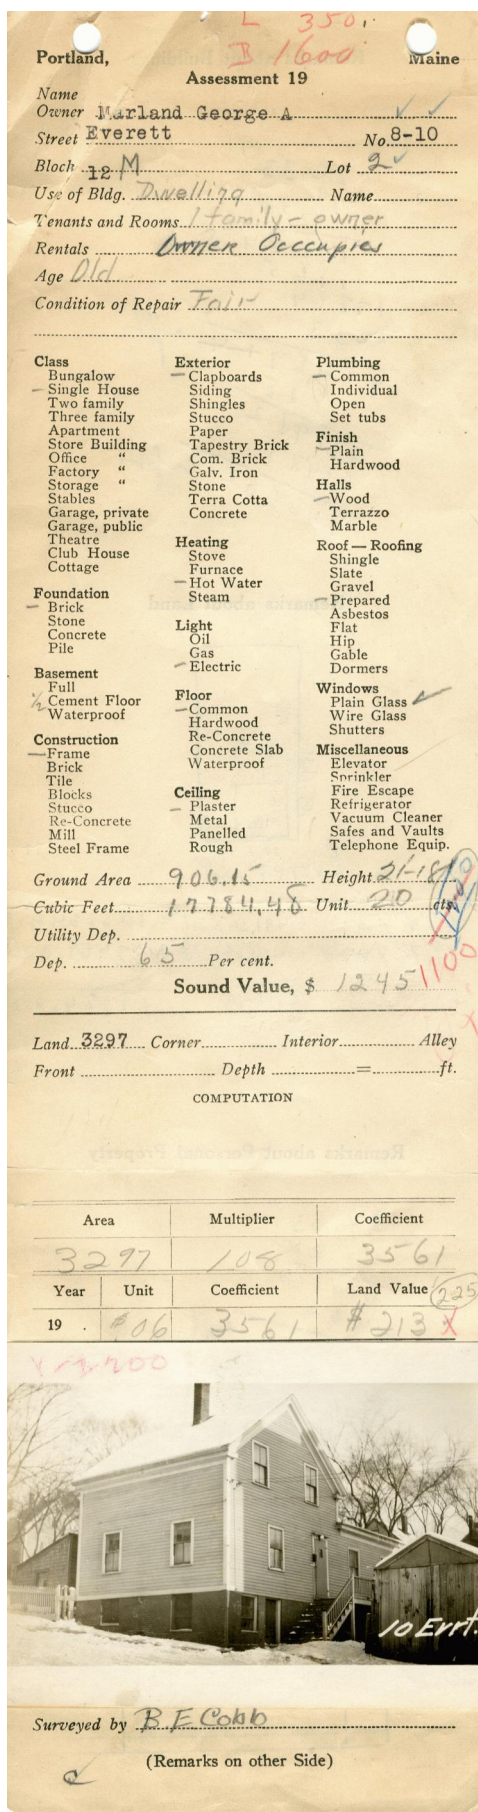 L 350.
B 1600
Portland, Maine
Assessment 19
Name
Owner Marland George A
Street Everett No. 8-10
Bloch 12 M Lot 2
Use of Bldg. Dwelling Name
Tenants and Rooms 1 family - owner
Rentals Owner Occcupies
Age Old
Condition of Repair Fair
Class
Bungalow
Single House
Two family
Three family
Apartment
Store Building
Office "
Factory "
Storage "
Stables
Garage, private
Garage, public
Theatre
Club House
Cottage
Foundation
Brick
Stone
Concrete
Pile
Basement
Full
1/2 Cement Floor
Waterproof
Construction
Frame
Brick
Tile
Blocks
Stucco
Re-Concrete
Mill
Steel Frame
Exterior
Clapboards
Siding
Shingles
Stucco
Paper
Tapestry Brick
Com. Brick
Galv. Iron
Stone
Terra Cotta
Concrete
Heating
Stove
Furnace
Hot Water
Steam
Light
Oil
Gas
Electric
Floor
Common
Hardwood
Re-Concrete
Concrete Slab
Waterproof
Ceiling
Plaster
Metal
Panelled
Rough
Plumbing
Common
Individual
Open
Set tubs
Finish
Plain
Hardwood
Halls
Wood
Terrazzo
Marble
Roof — Roofing
Shingle
Slate
Gravel
Prepared
Asbestos
Flat
Hip
Gable
Dormers
Windows
Plain Glass
Wire Glass
Shutters
Miscellaneous
Elevator
Sprinkler
Fire Escape
Refrigerator
Vacuum Cleaner
Safes and Vaults
Telephone Equip.
Ground Area 906.15 Height 21-18
Cubic Feet 17784.48 Unit 20 cts.
Utility Dep.
Dep. 65 Per cent.
Sound Value, $ 1245 1100
Land 3297 Corner Interior Alley
Front Depth = ft.
COMPUTATION
Area Multiplier Coefficient
3297 108 3561
Year Unit Coefficient Land Value 225
19 . $06 3561 $213 X
10 Errt.
Surveyed by B E Cobb
(Remarks on other Side)